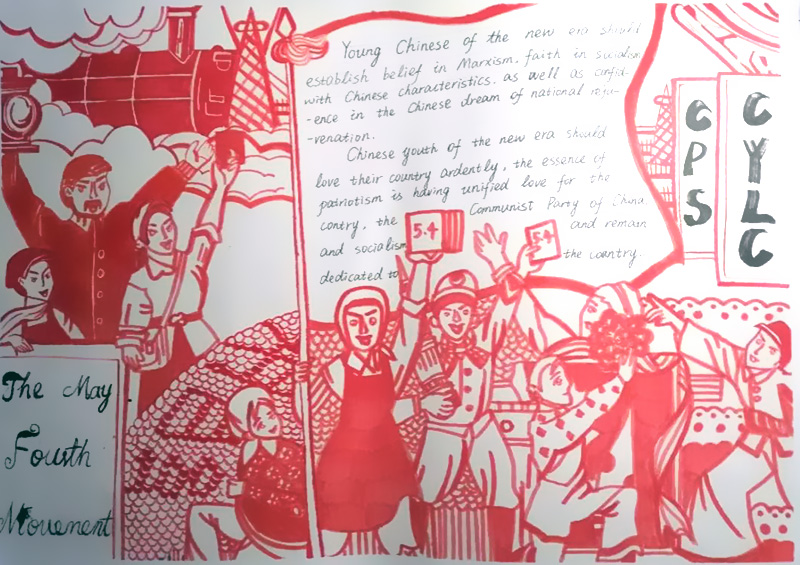 Young Chinese of the new era should
establish belief in Marxism, faith in socialism
with Chinese characteristics, as well as confid-
-ence in the Chinese dream of national reju-
-venation.
Chinese youth of the new era should
love their country ardently, the essence of
patriotism is having unified love for the
contry, the Communist Party of China
and socialism and remain
dedicated to the country.
5.4
5.4
CPS
CYLC
The May
Fourth
Movement